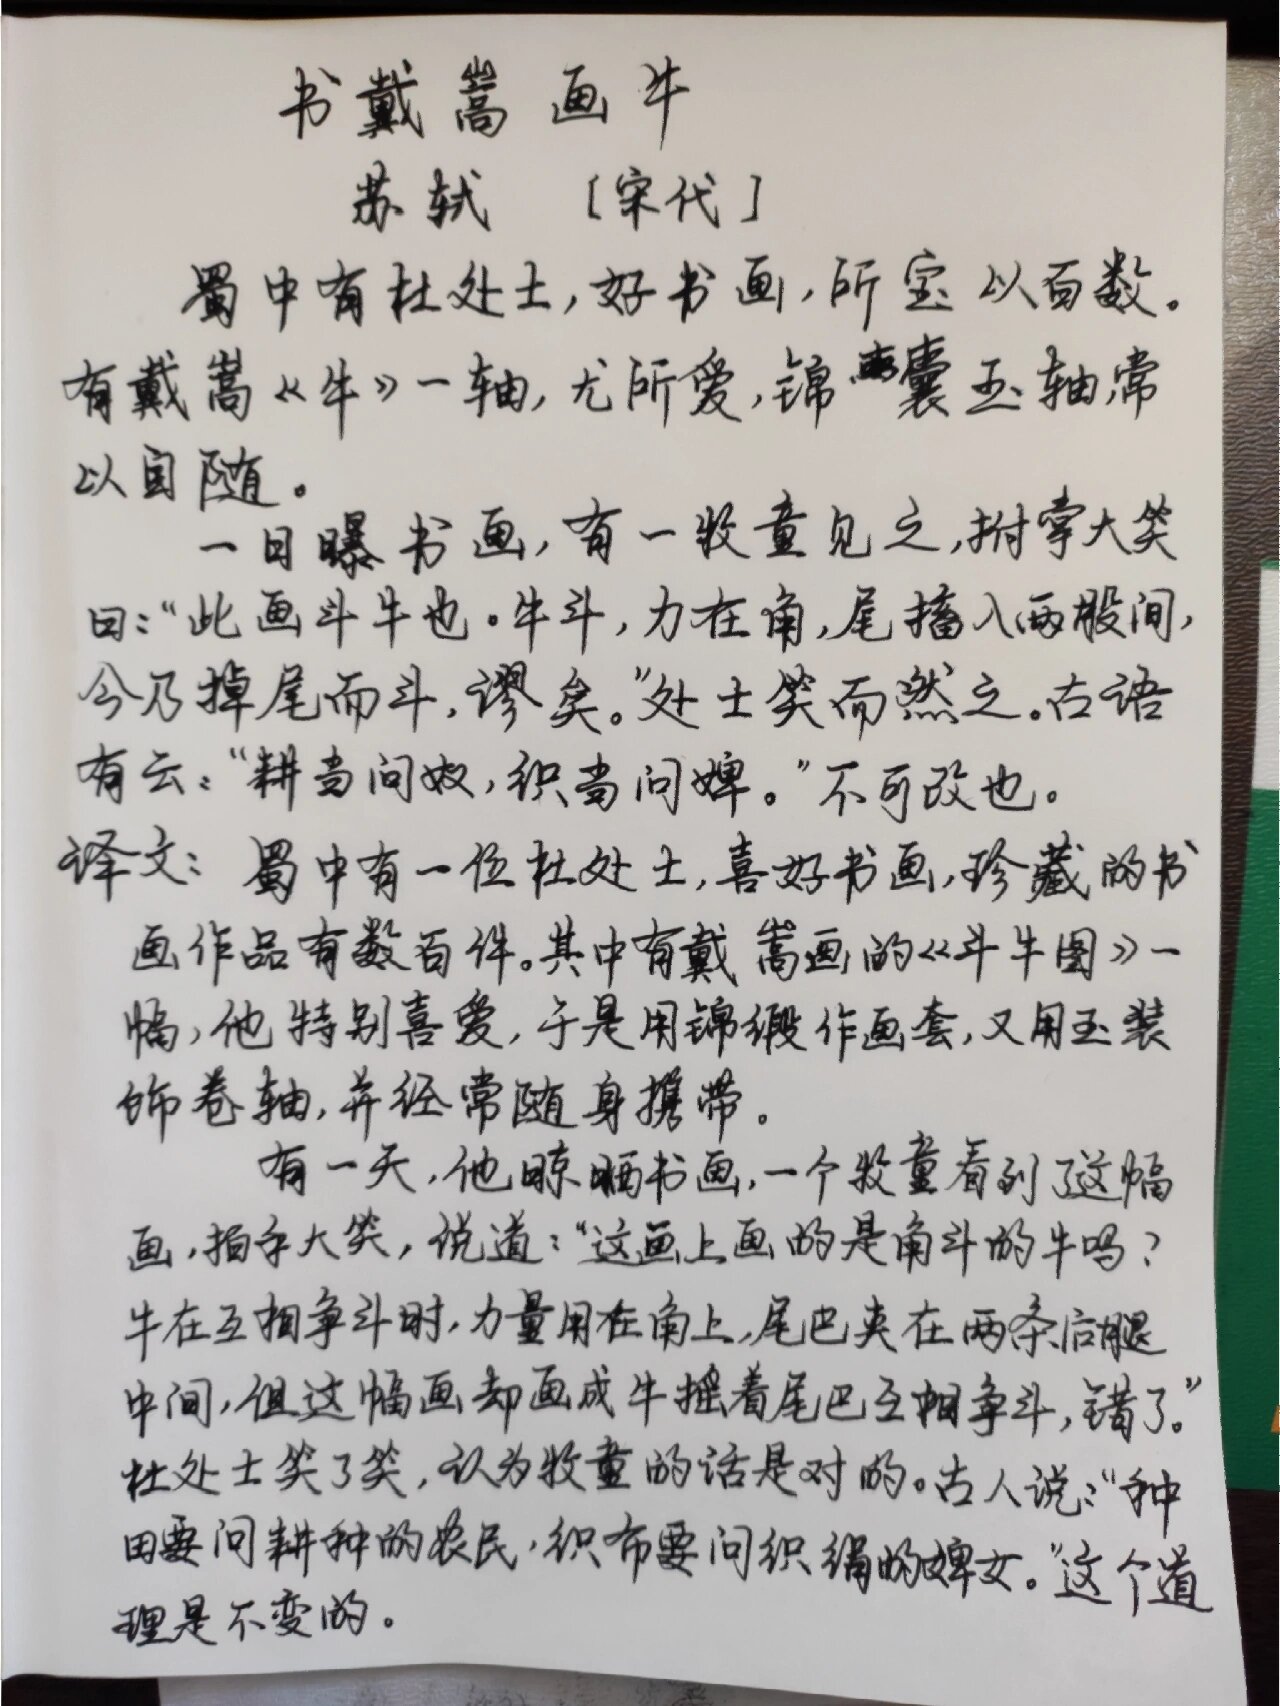 书戴嵩画牛
苏轼 [宋代]
蜀中有杜处士,好书画,所宝以百数。
有戴嵩《牛》一轴,尤所爱,锦囊玉轴,常
以自随。
一日曝书画,有一牧童见之,拊掌大笑
曰:“此画斗牛也。牛斗,力在角,尾搐入两股间,
今乃掉尾而斗,谬矣。”处士笑而然之。古语
有云:“耕当问奴,织当问婢。”不可改也。
译文:蜀中有一位杜处士,喜好书画,珍藏的书
画作品有数百件。其中有戴嵩画的《斗牛图》一
幅,他特别喜爱,于是用锦缎作画套,又用玉装
饰卷轴,并经常随身携带。
有一天,他晾晒书画,一个牧童看到了这幅
画,拍手大笑,说道:“这画上画的是角斗的牛吗?
牛在互相争斗时,力量用在角上,尾巴夹在两条后腿
中间,但这幅画却画成牛摇着尾巴互相争斗,错了。”
杜处士笑了笑,认为牧童的话是对的。古人说:“种
田要问耕种的农民,织布要问织绢的婢女。”这个道
理是不变的。